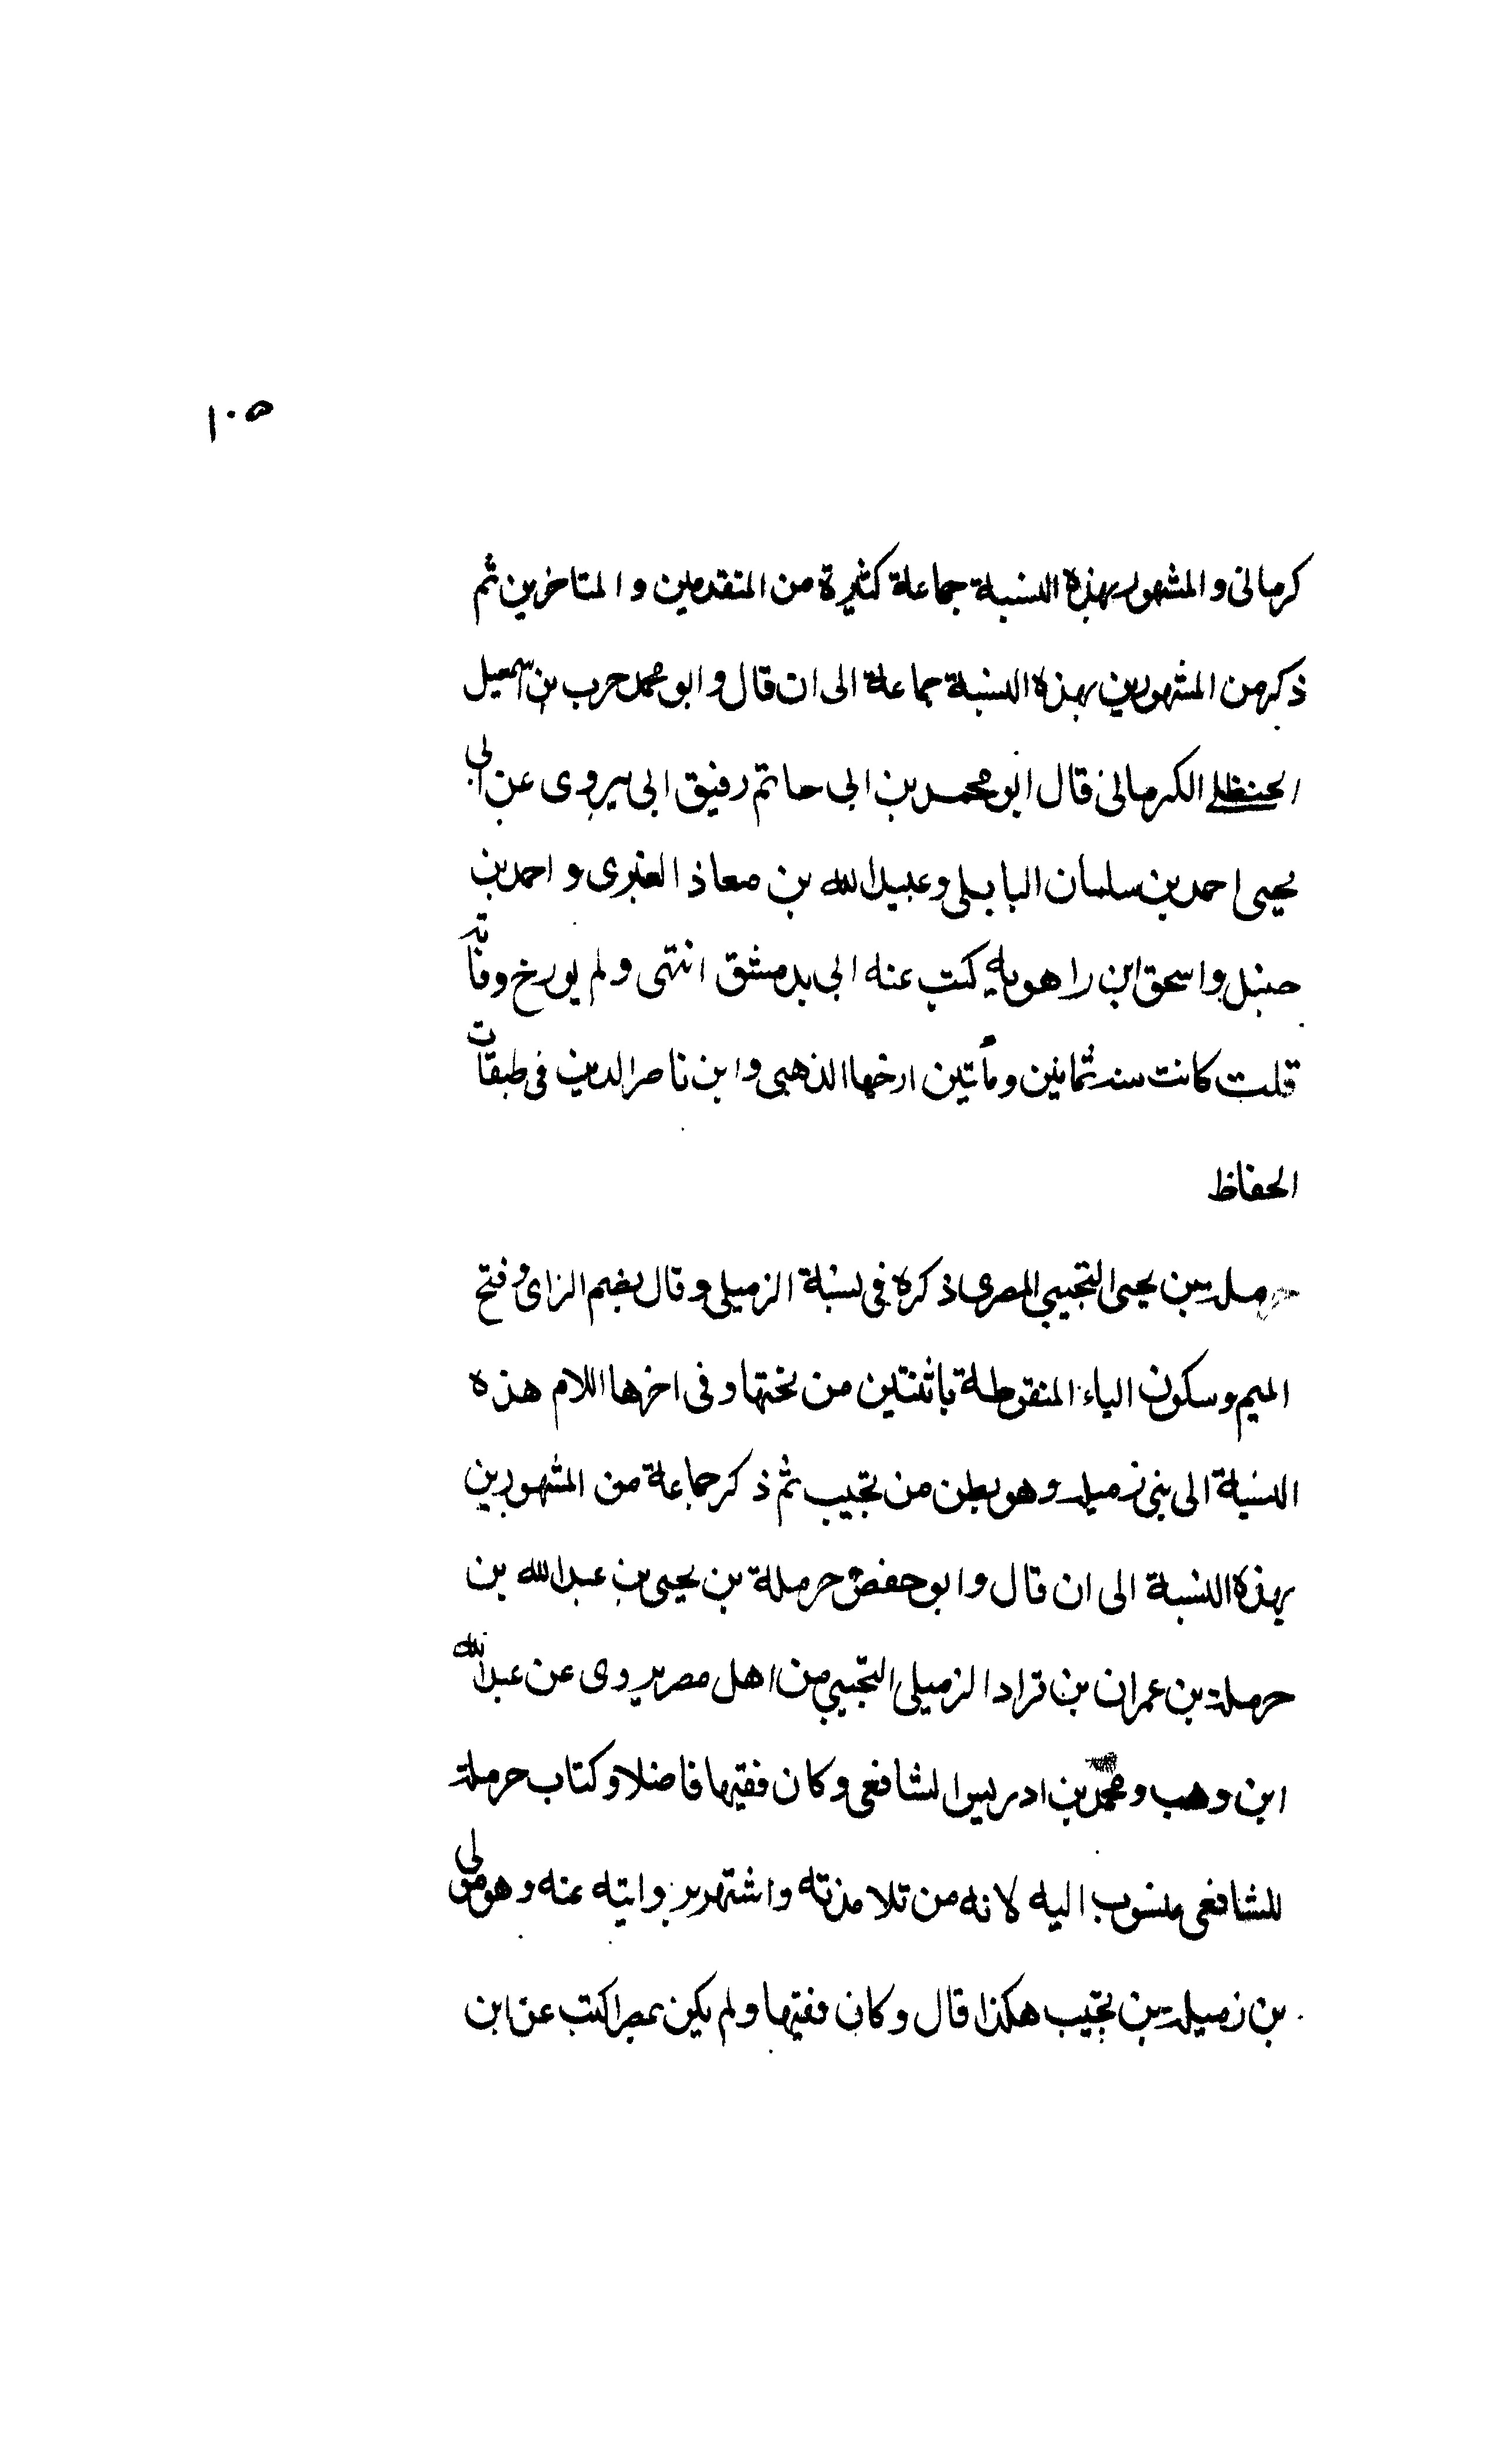 ١٠٥
كرمانى والمشهور بهذه النسبة جماعة كثيرة من المتقدمين والمتاخرين ثم
ذكر من المشهورين بهذه النسبة جماعة الى ان قال وابو محمد حرب بن اسمعيل
الحنظلى الكرمانى قال ابو محمد بن ابى حاتم رفيق ابى يروى عن ابى
يحيى احمد بن سلمان الباهلى وعبيد الله بن معاذ العنبرى واحمد بن
حنبل واسحق ابن راهويه كتب عنه ابى بدمشق انتهى ولم يورخ وفاته
قلت كانت سنة ثمانين ومأتين ارخها الذهبى وابن ناصر الدين فى طبقات
الحفاظ
حرملة بن يحيى التجيبى المصرى ذكره فى نسبة الزميلى وقال بضم الزاى وفتح
الميم وسكون الياء المنقوطة باثنتين من تحتها وفى اخرها اللام هذه
النسبة الى بنى زميلة وهو بطن من تجيب ثم ذكر جماعة من المشهورين
بهذه النسبة الى ان قال وابو حفص حرملة بن يحيى بن عبد الله بن
حرملة بن عمران بن قراد الزميلى التجيبى من اهل مصر يروى عن عبد الله
ابن وهب ومحمد بن ادريس الشافعى وكان فقيها فاضلا وكتاب حرملة
للشافعى منسوب اليه لانه من تلامذته واشتهر بروايته عنه وهو مولى
بن زميلة بن تجيب هكذا قال وكان فقيها ولم يكن بمصر اكتب عن ابن